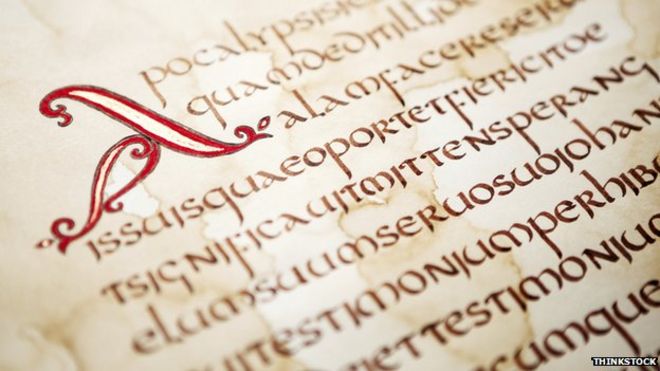 Apocalypsisi
quamdeditilli
alamfacereser
issuisquaeoportetfiericitoe
tsignificauitmittensperang
elumsuumseruosuojohan
uitestimoniumperhib
iettestimoniu
cumque
THINKSTOCK